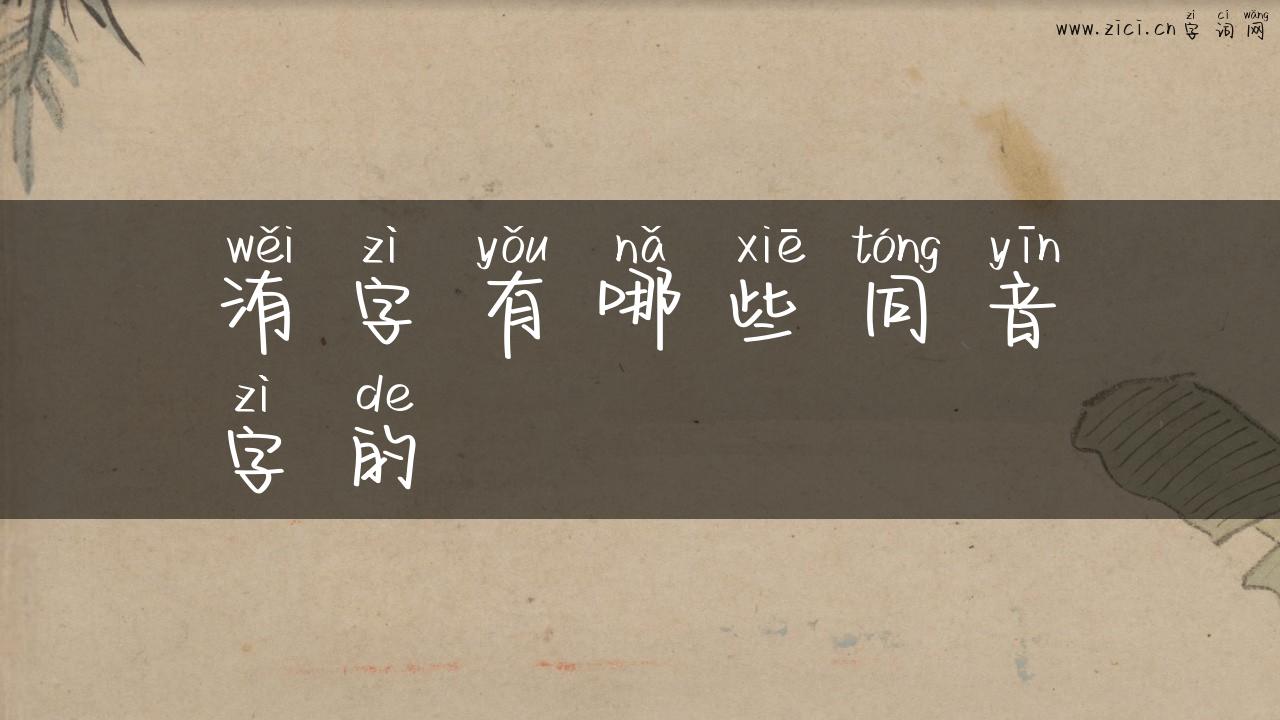 zì cí wǎng
www.zici.cn 字 词 网
wěi zì yǒu nǎ xiē tóng yīn
洧 字 有 哪 些 同 音
zì de
字 的